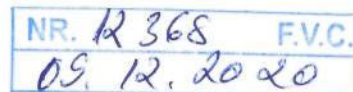 NR. 12368 F.V.C.
09. 12. 2020